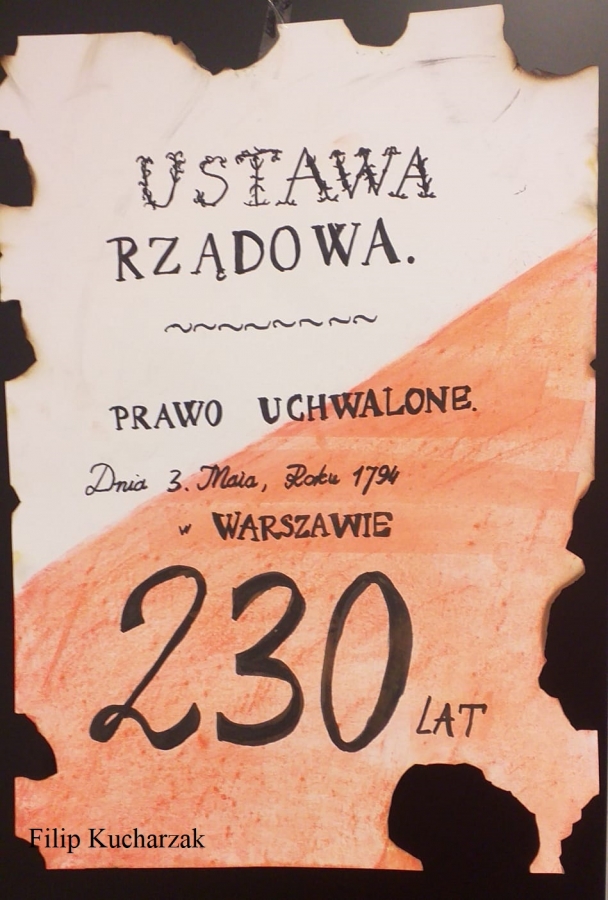 USTAWA
RZĄDOWA.
PRAWO UCHWALONE.
Dnia 3. Maia, Roku 1794
w WARSZAWIE
230 LAT
Filip Kucharzak